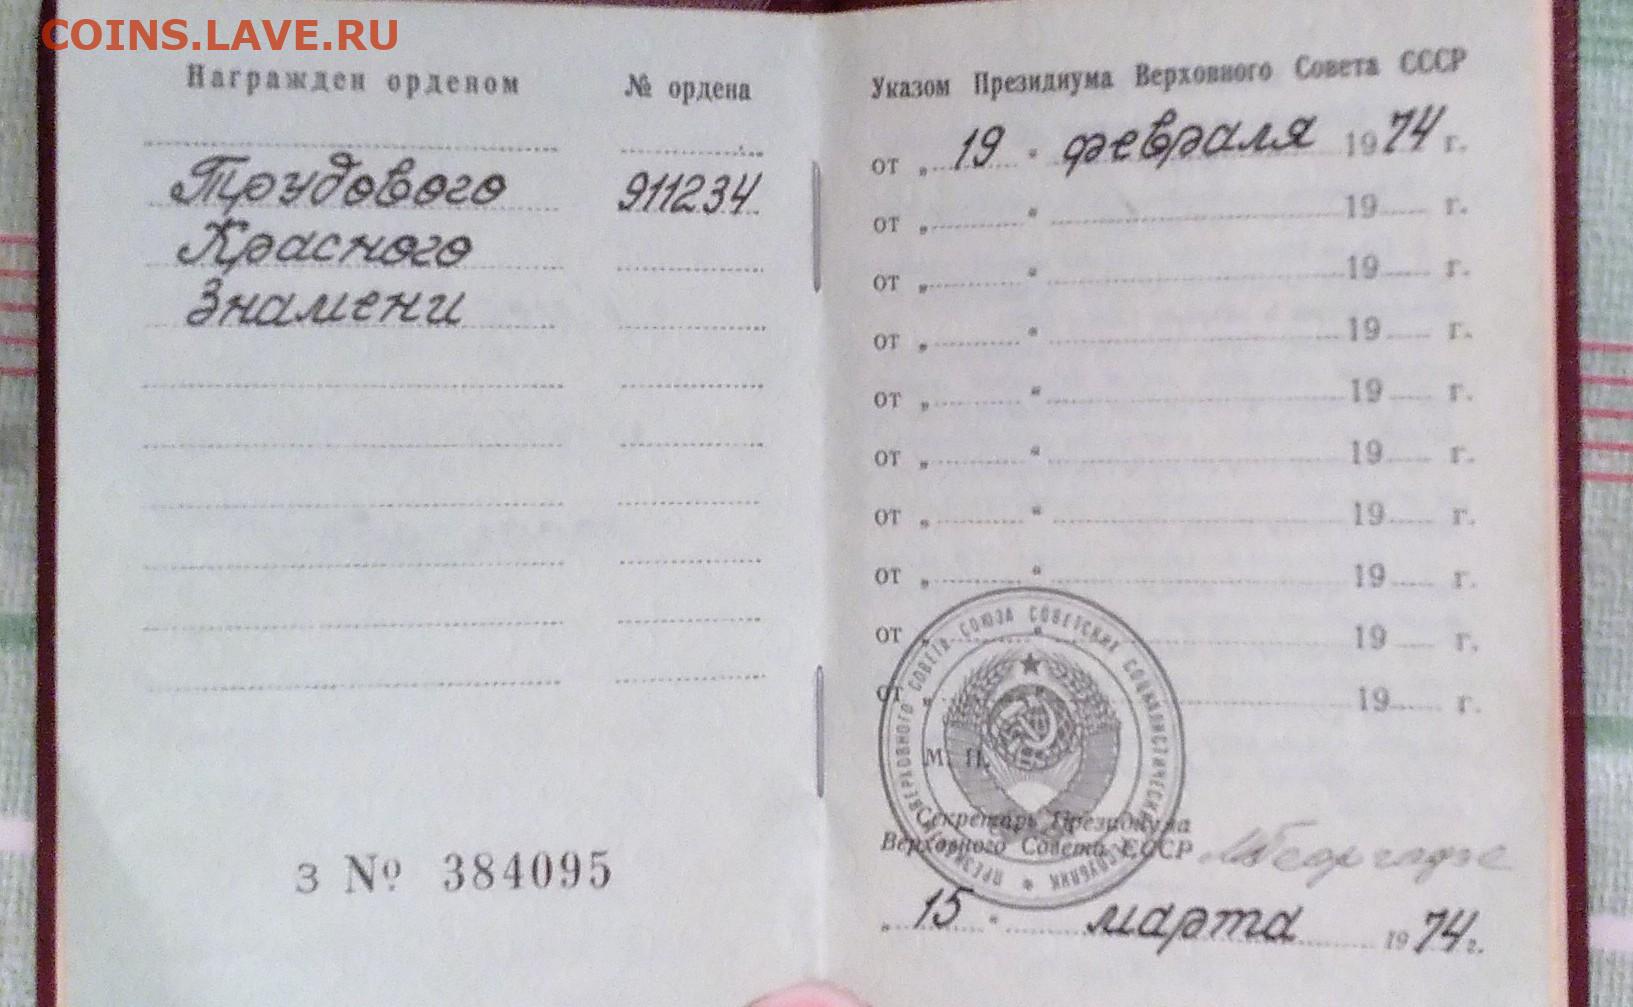 COINS.LAVE.RU
Награжден орденом
№ ордена
Трудового 911234
Красного
Знамени
З № 384095
Указом Президиума Верховного Совета СССР
от „ 19 “ февраля 1974 г.
от „ “ 19 г.
от „ “ 19 г.
от „ “ 19 г.
от „ “ 19 г.
от „ “ 19 г.
от „ “ 19 г.
от „ “ 19 г.
от „ “ 19 г.
от „ “ 19 г.
ПРЕЗИДИУМ ВЕРХОВНОГО СОВЕТА СОЮЗА СОВЕТСКИХ СОЦИАЛИСТИЧЕСКИХ РЕСПУБЛИК
М. П.
Секретарь Президиума
Верховного Совета СССР
„ 15 “ марта 1974 г.